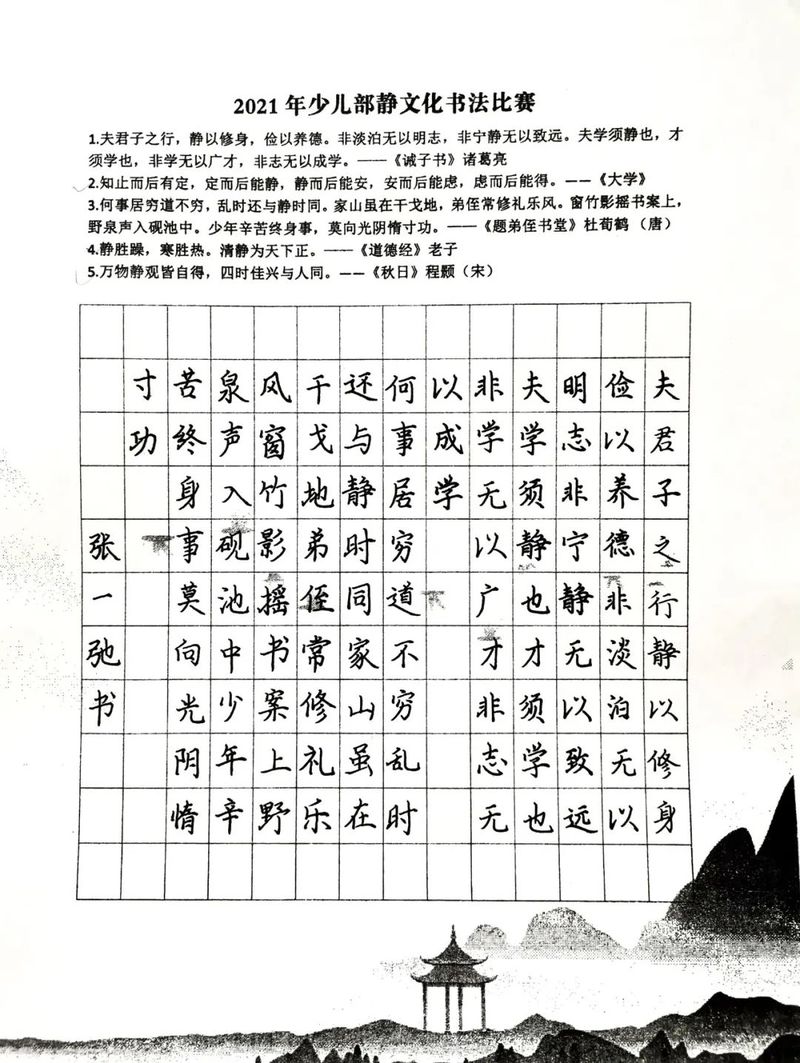 2021年少儿部静文化书法比赛
1.夫君子之行，静以修身，俭以养德。非淡泊无以明志，非宁静无以致远。夫学须静也，才
须学也，非学无以广才，非志无以成学。——《诫子书》诸葛亮
2.知止而后有定，定而后能静，静而后能安，安而后能虑，虑而后能得。——《大学》
3.何事居穷道不穷，乱时还与静时同。家山虽在干戈地，弟侄常修礼乐风。窗竹影摇书案上，
野泉声入砚池中。少年辛苦终身事，莫向光阴惰寸功。——《题弟侄书堂》杜荀鹤（唐）
4.静胜躁，寒胜热。清静为天下正。——《道德经》老子
5.万物静观皆自得，四时佳兴与人同。——《秋日》程颢（宋）
夫君子之行静以修身
俭以养德非淡泊无以
明志非宁静无以致远
夫学须静也才须学也
非学无以广才非志无
以成学
何事居穷道不穷乱时
还与静时同家山虽在
干戈地弟侄常修礼乐
风窗竹影摇书案上野
泉声入砚池中少年辛
苦终身事莫向光阴惰
寸功
张一弛书